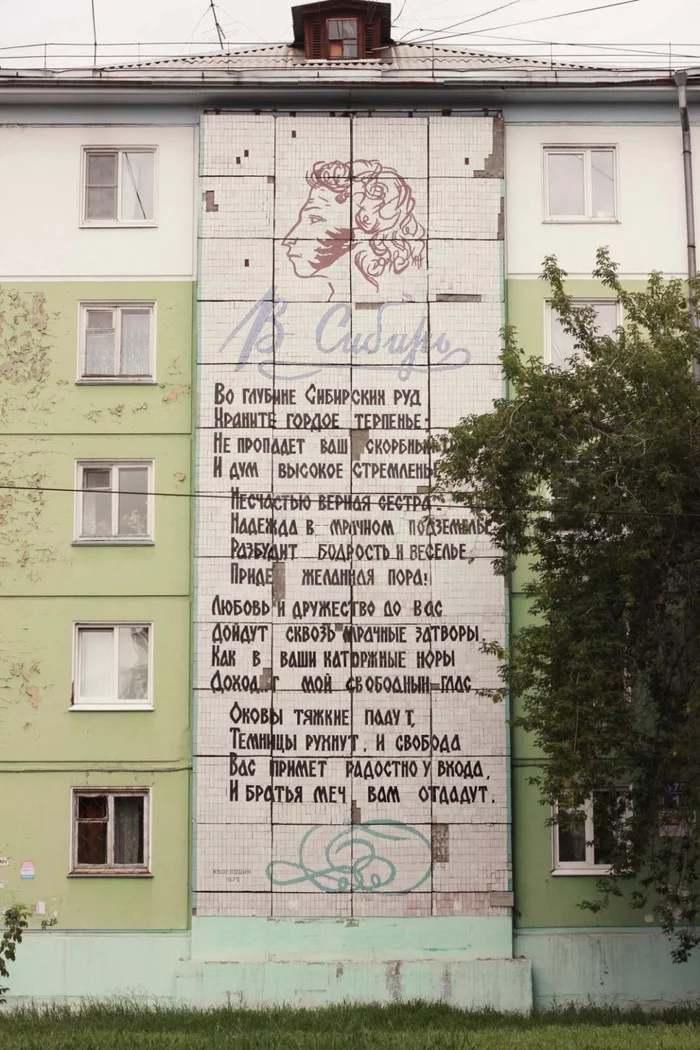 В Сибирь
Во глубине Сибирских руд
Храните гордое терпенье:
Не пропадет ваш скорбный
И дум высокое стремленье
Несчастью верная сестра-
Надежда в мрачном подземелье
Разбудит бодрость и веселье.
Приде желанная пора:
Любовь и дружество до вас
Дойдут сквозь мрачные затворы.
Как в ваши каторжные норы
Доходит мой свободный глас
Оковы тяжкие падут,
Темницы рухнут, и свобода
Вас примет радостно у входа,
И братья меч вам отдадут.
1975